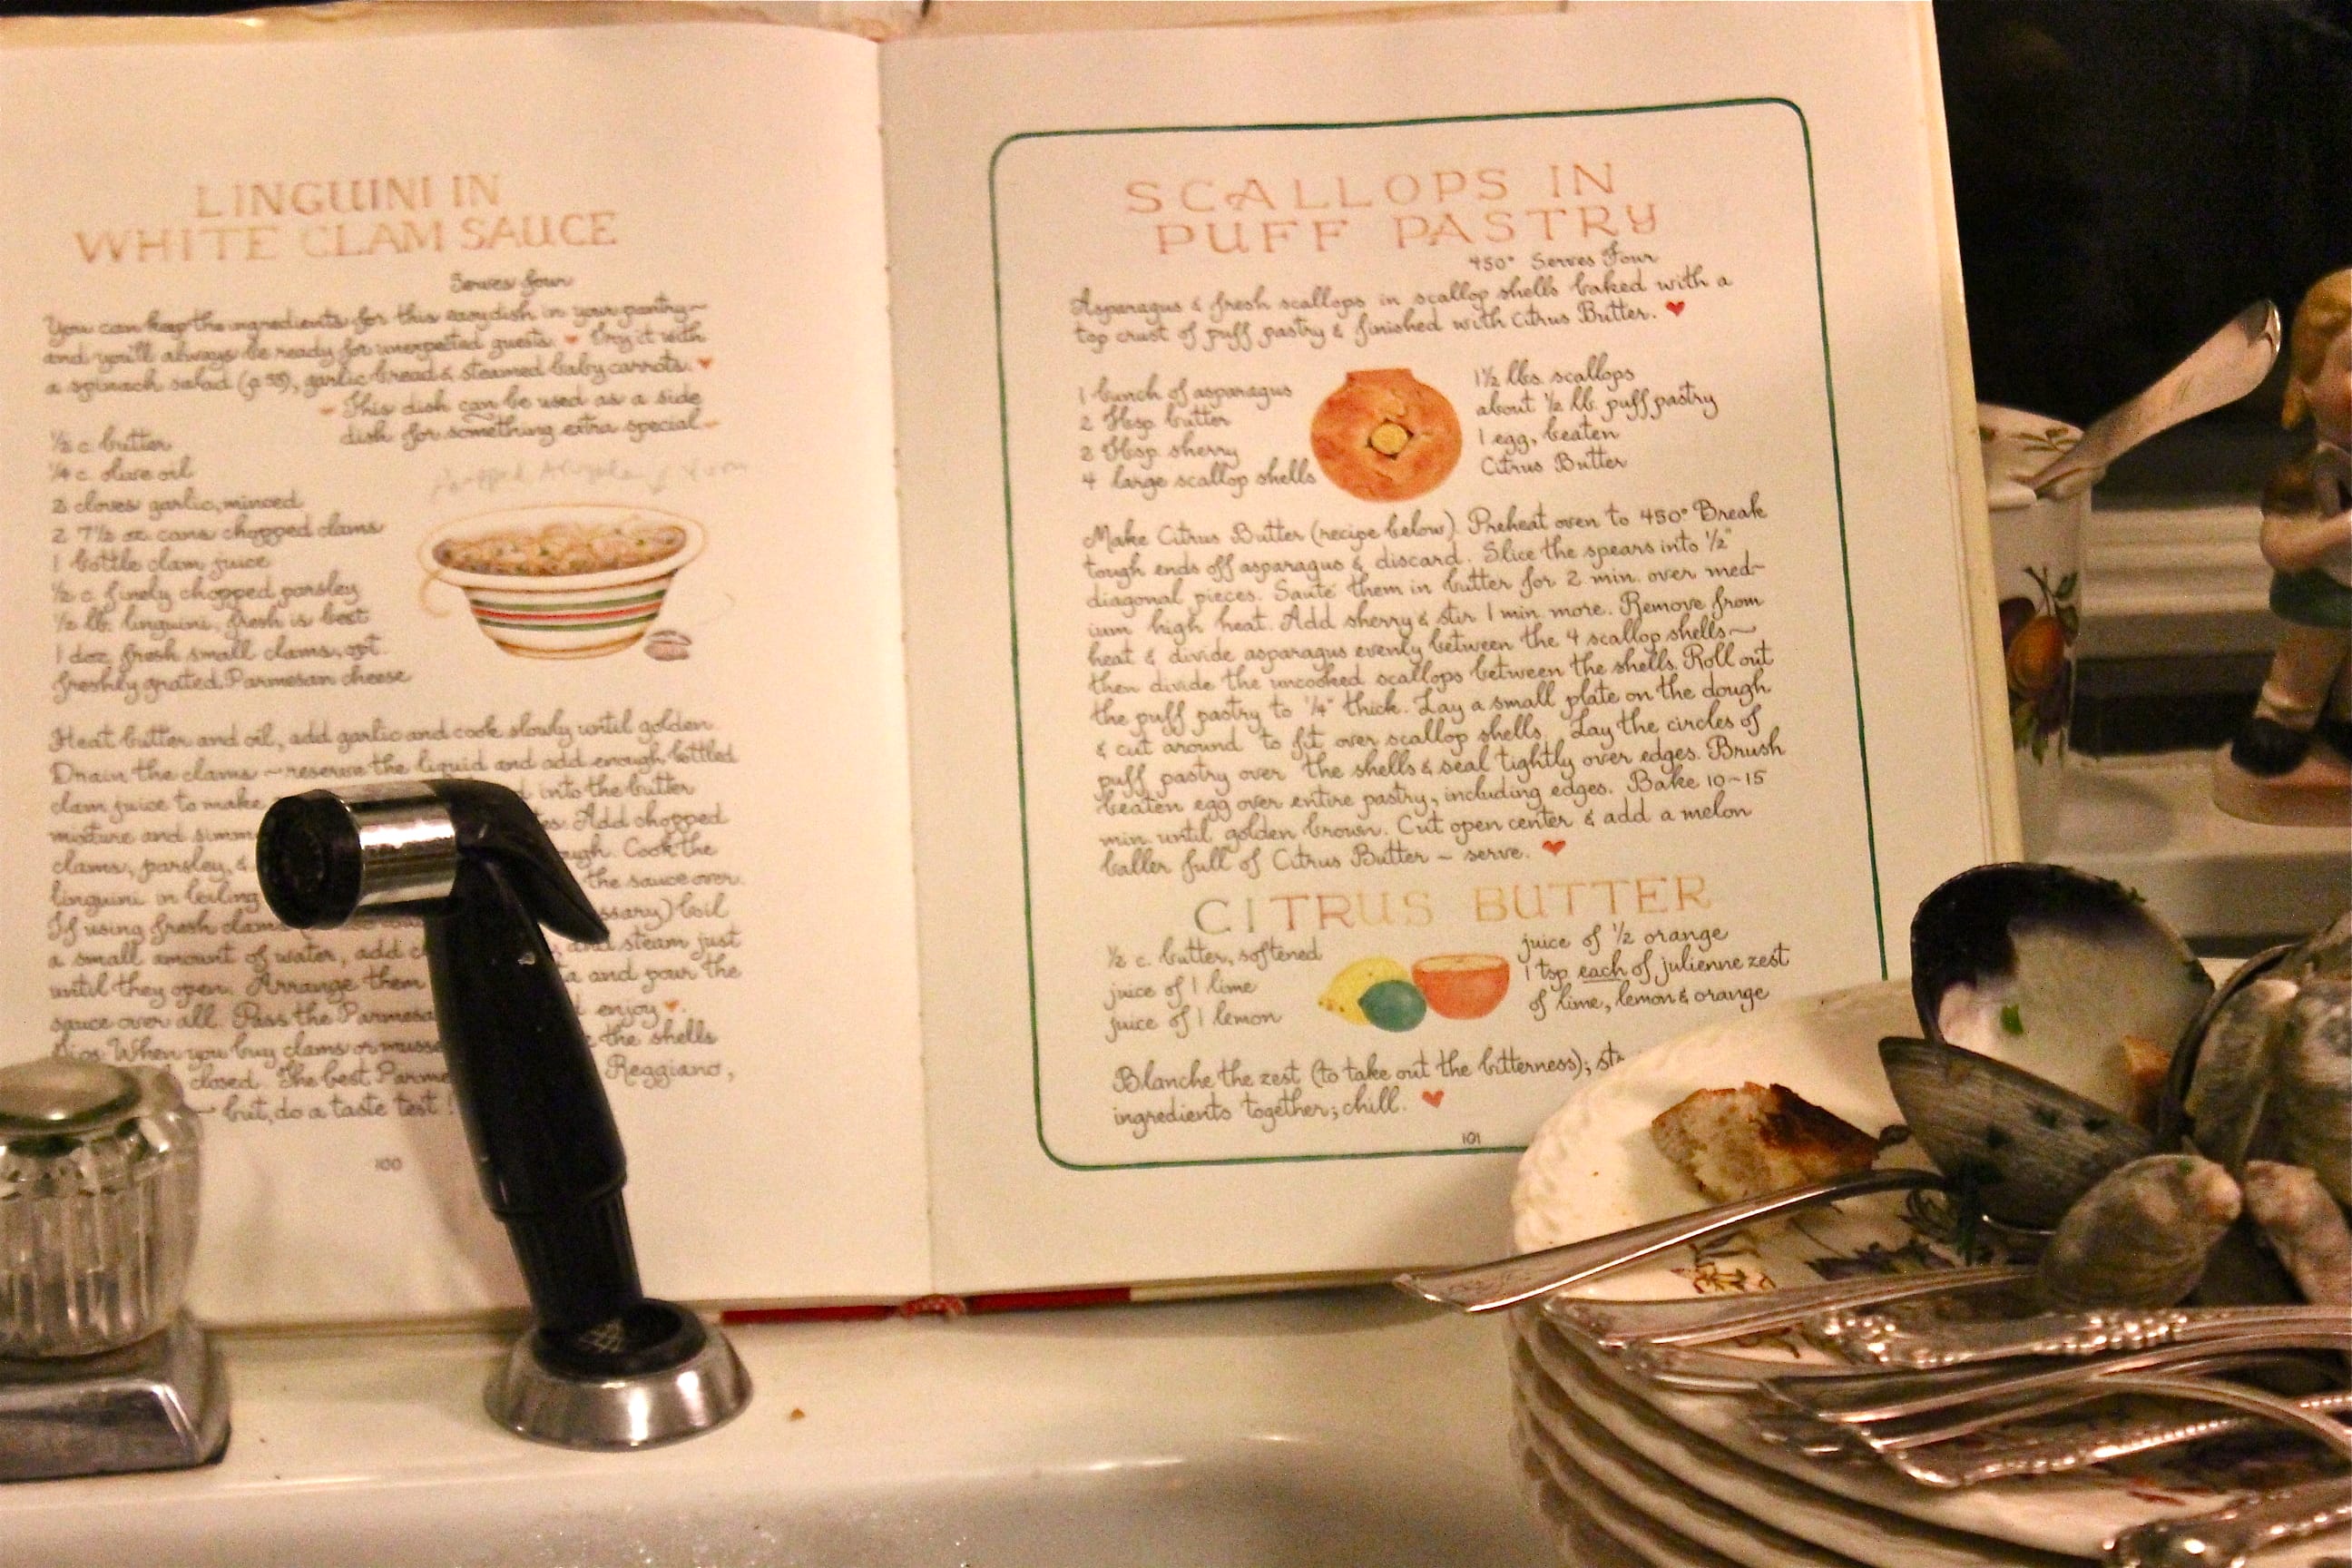 LINGUINI IN
WHITE CLAM SAUCE
Serves four
You can keep the ingredients for this easy dish in your pantry~
and you'll always be ready for unexpected guests. ♥ Try it with
a spinach salad (p. 59), garlic bread & steamed baby carrots. ♥
This dish can be used as a side
dish for something extra special
½ c. butter
¼ c. olive oil
2 cloves garlic, minced
2 7½ oz. cans chopped clams
1 bottle clam juice
½ c. finely chopped parsley
½ lb. linguini, fresh is best
1 doz. fresh small clams, opt.
freshly grated Parmesan cheese
Heat butter and oil, add garlic and cook slowly until golden.
Drain the clams ~ reserve the liquid and add enough bottled
clam juice to make into the butter
mixture and Add chopped
clams, parsley, & Cook the
linguini in boiling the sauce over.
If using fresh clams boil
a small amount of water, add and steam just
until they open. Arrange them and pour the
sauce over all. Pass the enjoy ♥.
When you buy clams or the shells
closed. The best Reggiano,
~ but, do a taste test!
100
SCALLOPS IN
PUFF PASTRY
450° Serves Four
Asparagus & fresh scallops in scallop shells baked with a
top crust of puff pastry & finished with Citrus Butter. ♥
1 bunch of asparagus
2 Tbsp. butter
2 Tbsp. sherry
4 large scallop shells
1½ lbs. scallops
about ½ lb. puff pastry
1 egg, beaten
Citrus Butter
Make Citrus Butter (recipe below). Preheat oven to 450° Break
tough ends off asparagus & discard. Slice the spears into ½"
diagonal pieces. Sauté them in butter for 2 min. over med-
ium high heat. Add sherry & stir 1 min. more. Remove from
heat & divide asparagus evenly between the 4 scallop shells~
then divide the uncooked scallops between the shells. Roll out
the puff pastry to ¼" thick. Lay a small plate on the dough
& cut around to fit over scallop shells. Lay the circles of
puff pastry over the shells & seal tightly over edges. Brush
beaten egg over entire pastry, including edges. Bake 10-15
min. until golden brown. Cut open center & add a melon
baller full of Citrus Butter ~ serve. ♥
CITRUS BUTTER
½ c. butter, softened
juice of 1 lime
juice of 1 lemon
juice of ½ orange
1 tsp. each of julienne zest
of lime, lemon & orange
Blanche the zest (to take out the bitterness);
ingredients together; chill. ♥
101